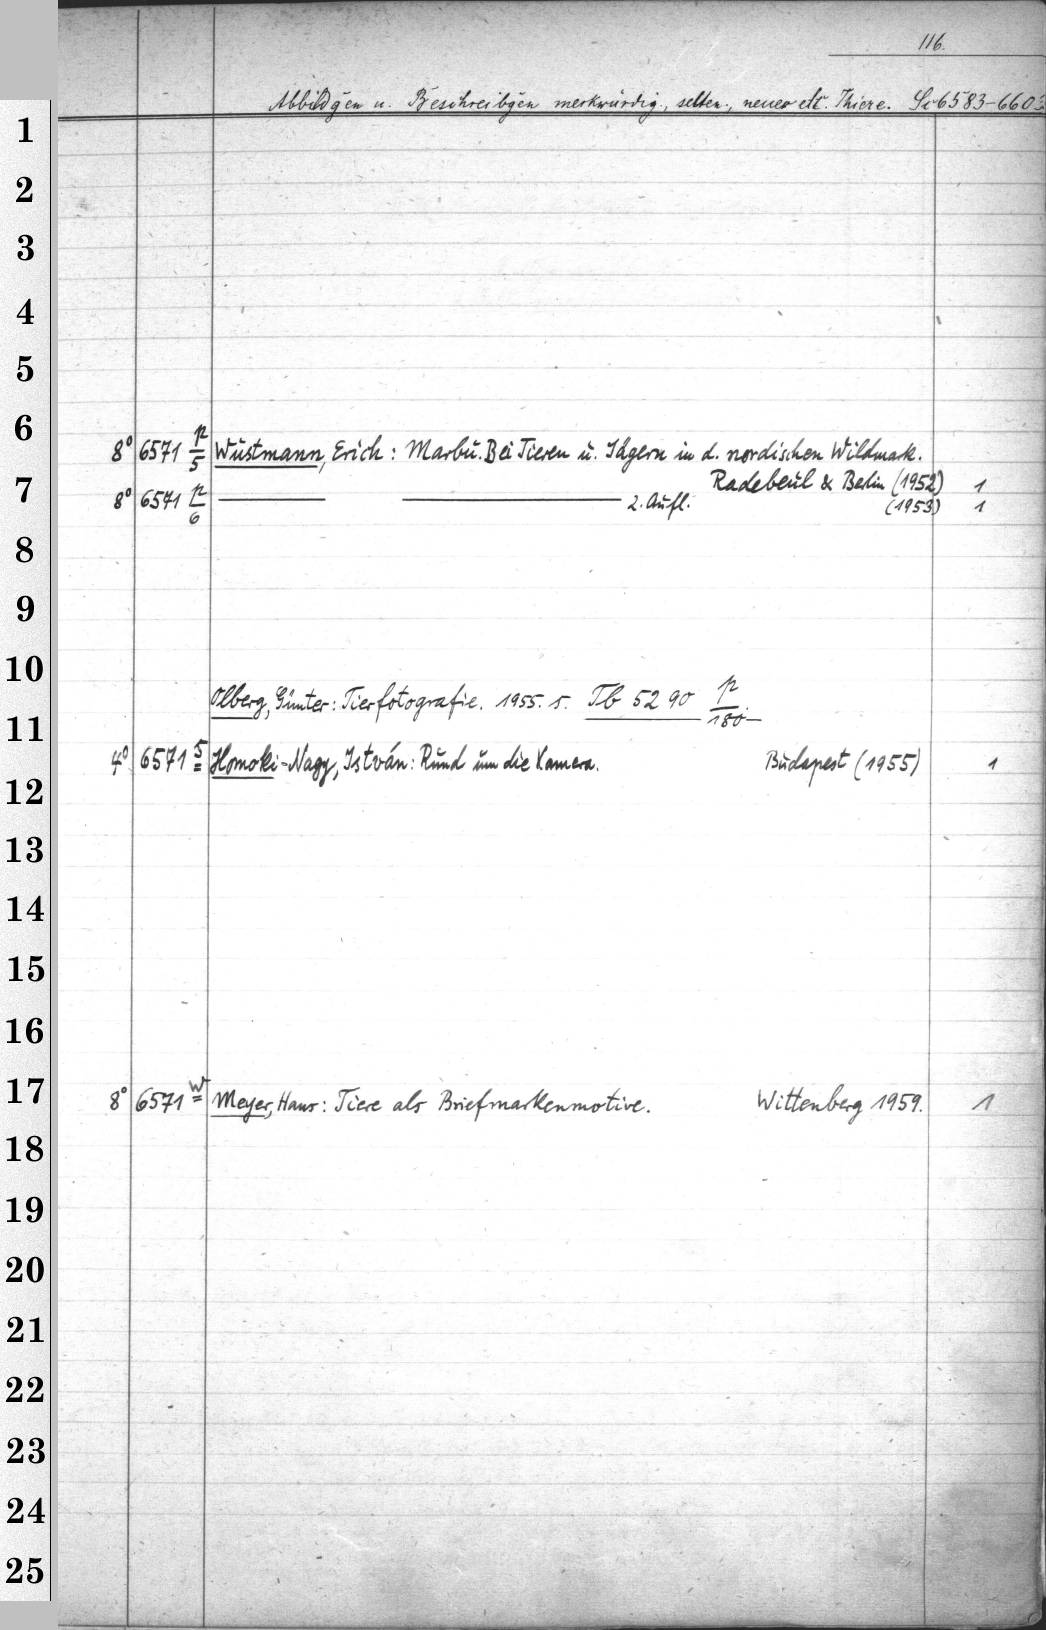 116.
Abbildgen u. Beschreibgen merkwürdig., selten., neuer etc. Thiere. Lc 6583-6603
1
2
3
4
5
6
8° 6571 p/5 Wustmann, Erich: Marbu. Bei Tieren u. Jägern in d. nordischen Wildmark.
Radebeul & Berlin (1952) 1
7
8° 6571 p/6 2. Aufl. (1953) 1
8
9
10
Olberg, Günter: Tierfotografie. 1955. s. Tb 5290 p/180
11
4° 6571 s Homoki-Nagy, István: Rund um die Kamera. Budapest (1955) 1
12
13
14
15
16
17
8° 6571 w Meyer, Hans: Tiere als Briefmarkenmotive. Wittenberg 1959. 1
18
19
20
21
22
23
24
25